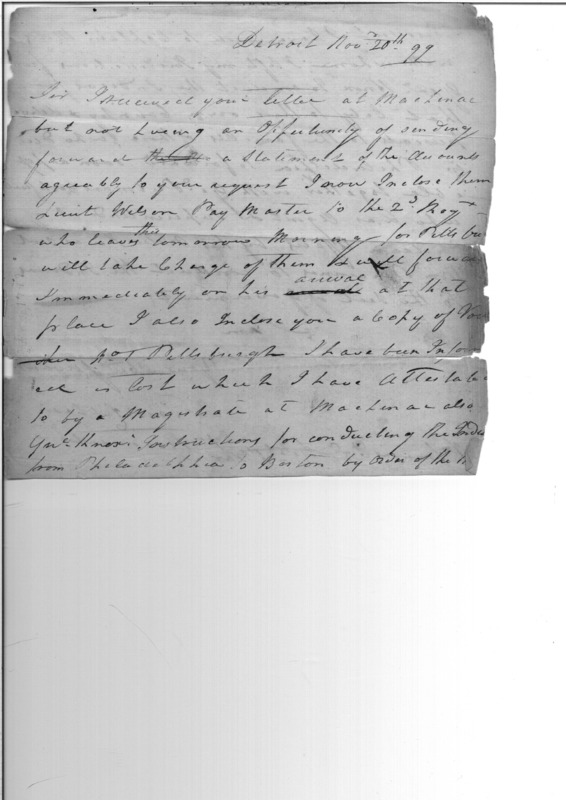 Detroit Novr 20th 99
Sir I received your letter at Mackinac
but not having an Oppertunity of sending
forward a Statement of the Accounts
agreeably to your request I now Inclose them
Lieut Wilson Pay Master to the 2d Regt
who leaves this tomorrow Morning for Pittsbu
will take Charge of them & will forwar
Immediately on his arival at that
place I also Inclose you a Copy of
at Pittsburgh I have been Infor
ed is Cost which I have Attestate
to by a Magistrate at Mackinac also
Genl Knox's Instructions for conducting the
from Philadelphia to Boston by Order of the